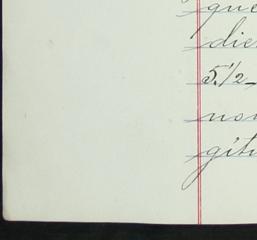 que
die
5.1/2
non
gitu